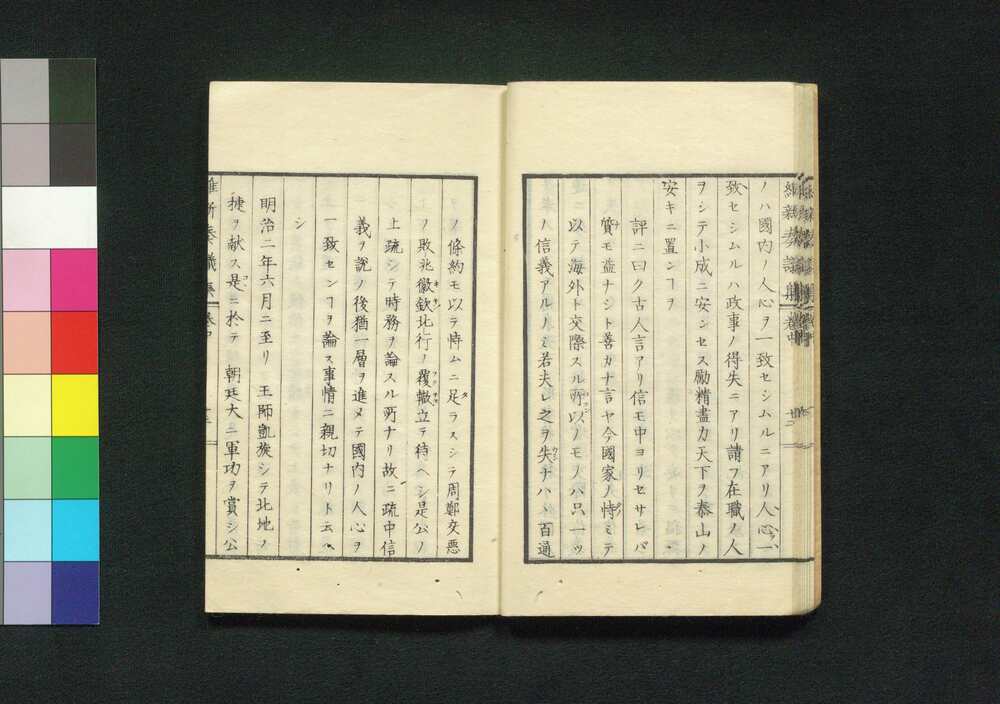 ノハ國内ノ人心ヲ一致セシムルニアリ人心ヲ一
致セシムルハ政事ノ得失ニアリ請フ在職ノ人
ヲシテ小成ニ安ンセス勵精盡力天下ヲ泰山ノ
安キニ置ンヿヲ
評ニ曰ク古人言アリ信モ中ヨリセサレバ
質モ益ナシト善カナ言ヤ今國家ノ恃ミテ
以テ海外ト交際スル所以ノモノハ只一ツ
ノ信義アルノミ若夫レ之ヲ失ナハヽ百通
ヲノ條約モ以テ恃ムニ足ラスシテ周鄭交惡
ノ敗兆徽欽北行ノ覆轍立テ待ヘシ是公ノ
上疏シテ時務ヲ論スル所ナリ故ニ疏中信
義ヲ説ノ後猶一層ヲ進メテ國内ノ人心ヲ
一致センヿヲ論ス事情ニ親切ナリト云ヘ
シ
明治二年六月ニ至リ 王師凱旋シテ北地ノ
捷ヲ献ス是ニ於テ 朝廷大ニ軍功ヲ賞シ公
維新奏議集 巻中